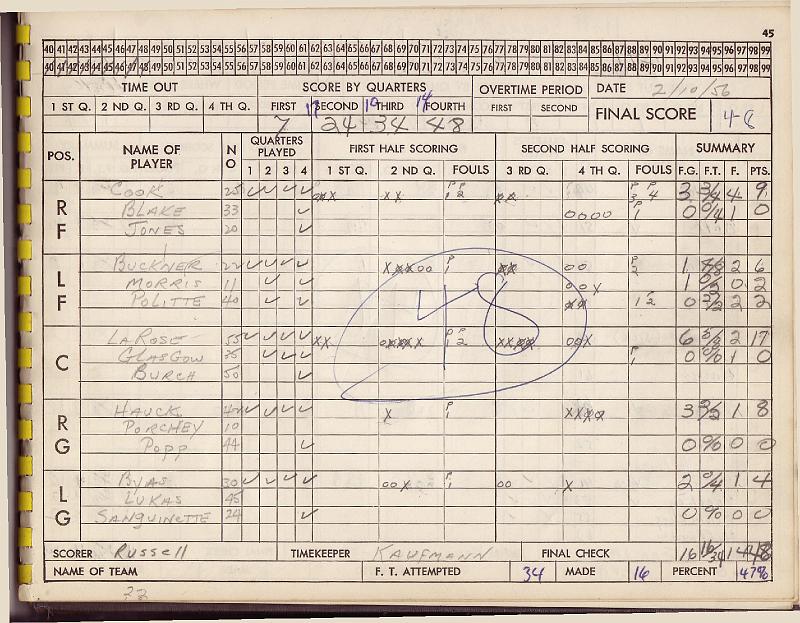 45
40 41 42 43 44 45 46 47 48 49 50 51 52 53 54 55 56 57 58 59 60 61 62 63 64 65 66 67 68 69 70 71 72 73 74 75 76 77 78 79 80 81 82 83 84 85 86 87 88 89 90 91 92 93 94 95 96 97 98 99
40 41 42 43 44 45 46 47 48 49 50 51 52 53 54 55 56 57 58 59 60 61 62 63 64 65 66 67 68 69 70 71 72 73 74 75 76 77 78 79 80 81 82 83 84 85 86 87 88 89 90 91 92 93 94 95 96 97 98 99
TIME OUT SCORE BY QUARTERS OVERTIME PERIOD DATE 2/10/56
1 ST Q. 2 ND Q. 3 RD Q. 4 TH Q. FIRST 17 SECOND 10 THIRD 14 FOURTH FIRST SECOND FINAL SCORE 48
7 24 34 48
POS. NAME OF PLAYER NO QUARTERS PLAYED FIRST HALF SCORING SECOND HALF SCORING SUMMARY
1 2 3 4 1 ST Q. 2 ND Q. FOULS 3 RD Q. 4 TH Q. FOULS F.G. F.T. F. PTS.
RF COOK 25 3 3/4 4 9
BLAKE 33 0 0/4 1 0
JONES 20
LF BUCKNER 22 1 4/8 2 6
MORRIS 11 1 0/2 0 2
POLITTE 40 0 2/2 2 2
C LAROSE 55 6 5/ 2 17
GLASGOW 35 0 0/0 1 0
BURCH 50
RG HAUCK 3 2/2 1 8
PORCHEY 10
POPP 44 0 0/0 0 0
LG BYAS 30 2 0/4 1 4
LUKAS 45
SANGUINETTE 24 0 0/0 0 0
48
SCORER Russell TIMEKEEPER KAUFMANN FINAL CHECK 16 16/34 14 48
NAME OF TEAM F. T. ATTEMPTED 34 MADE 16 PERCENT 47%